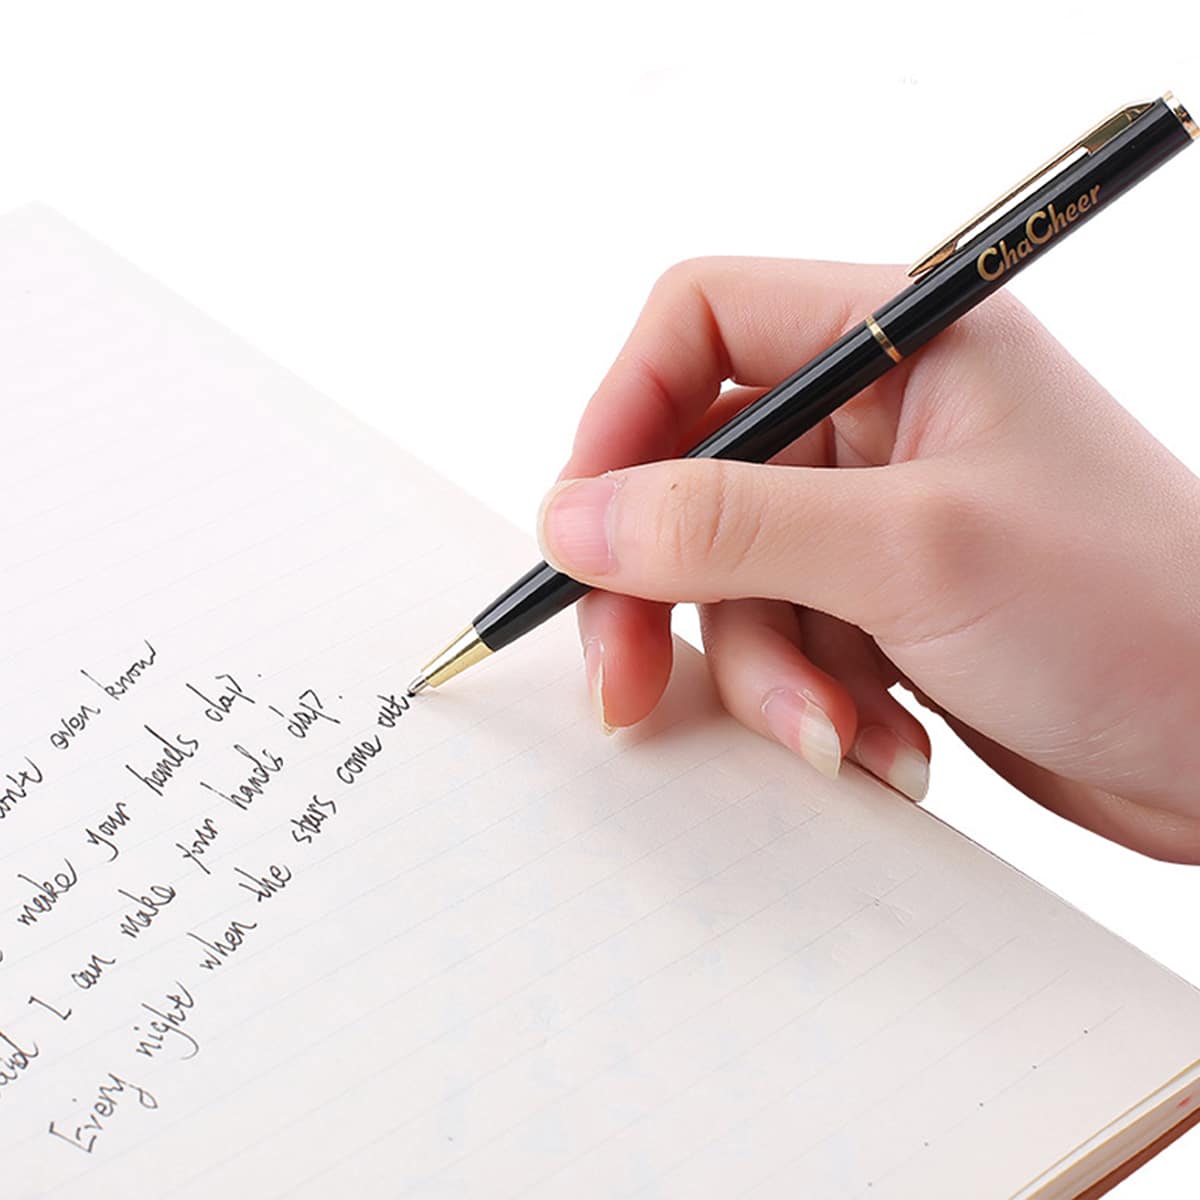 ChaCheer
even know
make your hands day.
I can make your hands day.
Every night when the stars come out